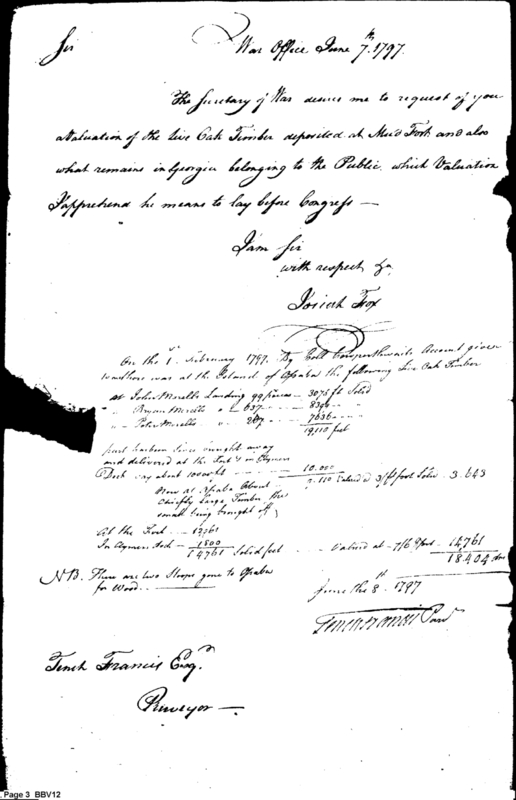 Sir War Office June 7th. 1797.
The Secretary of War desires me to request of you
a Valuation of the Live Oak Timber deposited at Mud Fort and also
what remains in Georgia belonging to the Public, which Valuation
I apprehend he means to lay before Congress —
I am Sir
with respect &c
Josiah Fox
On the 1st February 1797. By Account given
was at the Island of the following Live Oak Timber
at John Morells Landing 99 pieces — 3075 ft Solid
" Bryan Morells " 637 —
" Peter Morells — 267 — 7636 —
19,110 feet
brought away
and delivered at the
Dock say about — 10.000
9.110 Valued 3/ foot Solid . 3.643
Now at About
Chiefly Large Timber, the
small being brought off
At the Fort —
In Dock — 1800
14761 Solid feet — Valued at — 7/6 14761
18.404
NB. There are two Sloops gone to
for Wood.
June the 8th 1797
Tench Francis
Tench Francis Esqr.
Purveyor —
Page 3 BBV12